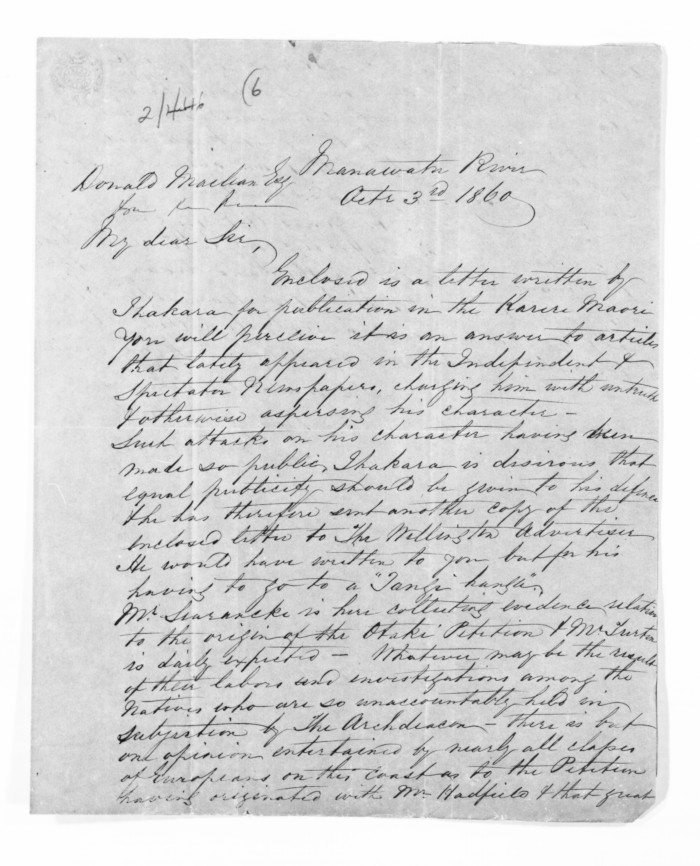 2/446 (6
Manawatu River
Donald Maclean Esq
Octr 3rd 1860
My dear Sir,
Enclosed is a letter written by
Ihakara for publication in the Karere Maori
You will perceive it is an answer to articles
that lately appeared in the Independent &
Spectator Newspapers, charging him with untruth
& otherwise aspersing his character -
Such attacks on his character having been
made so public, Ihakara is disirous that
equal publicity should be given to his defence
& he has therefore sent another copy of the
enclosed letter to The Wellington Advertiser
He would have written to you but for his
having to go to a "Tangi hanga",
Mr. Searancke is here collecting evidence relation
to the origin of the Otaki Petition & Mr Turton
is daily expected - Whatever may be the result
of their labors and investigations among the
Natives who are so unaccountably held in
subjection by The Archdeacon - there is but
one opinion entertained by nearly all classes
of Europeans on this coast as to the Petition
having originated with Mr Hadfield & that great